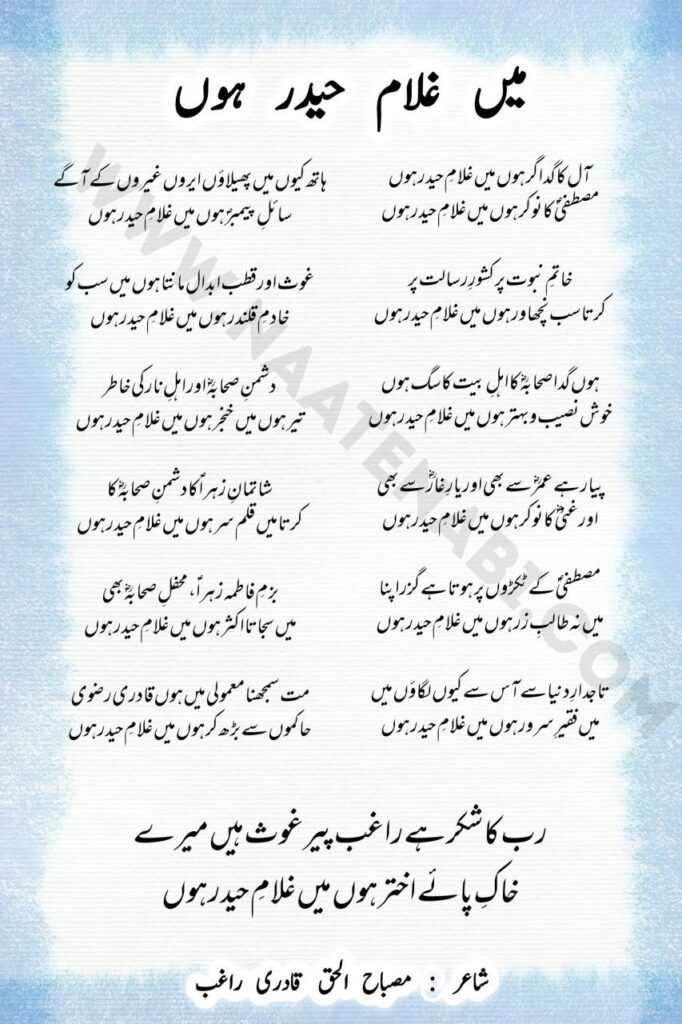 میں غلام حیدر ہوں
آل کا گداگر ہوں میں غلامِ حیدر ہوں
مصطفیٰؐ کا نوکر ہوں میں غلامِ حیدر ہوں
ہاتھ کیوں میں پھیلاؤں ایروں غیروں کے آگے
سائلِ پیمبرؐ ہوں میں غلامِ حیدر ہوں
خاتمِ نبوت پر کشورِ رسالت پر
کرتا سب نچھاور ہوں میں غلامِ حیدر ہوں
غوث اور قطب ابدال مانتا ہوں میں سب کو
خادمِ قلندر ہوں میں غلامِ حیدر ہوں
ہوں گدا صحابہؓ کا اہلِ بیت کا سگ ہوں
خوش نصیب و بہتر ہوں میں غلامِ حیدر ہوں
دشمنِ صحابہؓ اور اہلِ نار کی خاطر
تیر ہوں میں خنجر ہوں میں غلامِ حیدر ہوں
پیار ہے عمرؓ سے بھی اور یارِ غارؓ سے بھی
اور غنیؓ کا نوکر ہوں میں غلامِ حیدر ہوں
شاتمانِ زہراؑ کا دشمنِ صحابہؓ کا
کرتا میں قلم سر ہوں میں غلامِ حیدر ہوں
مصطفیٰؐ کے ٹکڑوں پر ہوتا ہے گزر اپنا
میں نہ طالبِ زر ہوں میں غلامِ حیدر ہوں
بزمِ فاطمہ زہراؑ، محفلِ صحابہؓ بھی
میں سجاتا اکثر ہوں میں غلامِ حیدر ہوں
تاجدارِ دنیا سے آس سے کیوں لگاؤں میں
میں فقیرِ سرور ہوں میں غلامِ حیدر ہوں
مت سمجھنا معمولی میں ہوں قادری رضوی
حاکموں سے بڑھ کر ہوں میں غلامِ حیدر ہوں
رب کا شکر ہے راغب پیر غوث ہیں میرے
خاکِ پائے اختر ہوں میں غلامِ حیدر ہوں
شاعر : مصباح الحق قادری راغب
WWW.NAATENABI.COM